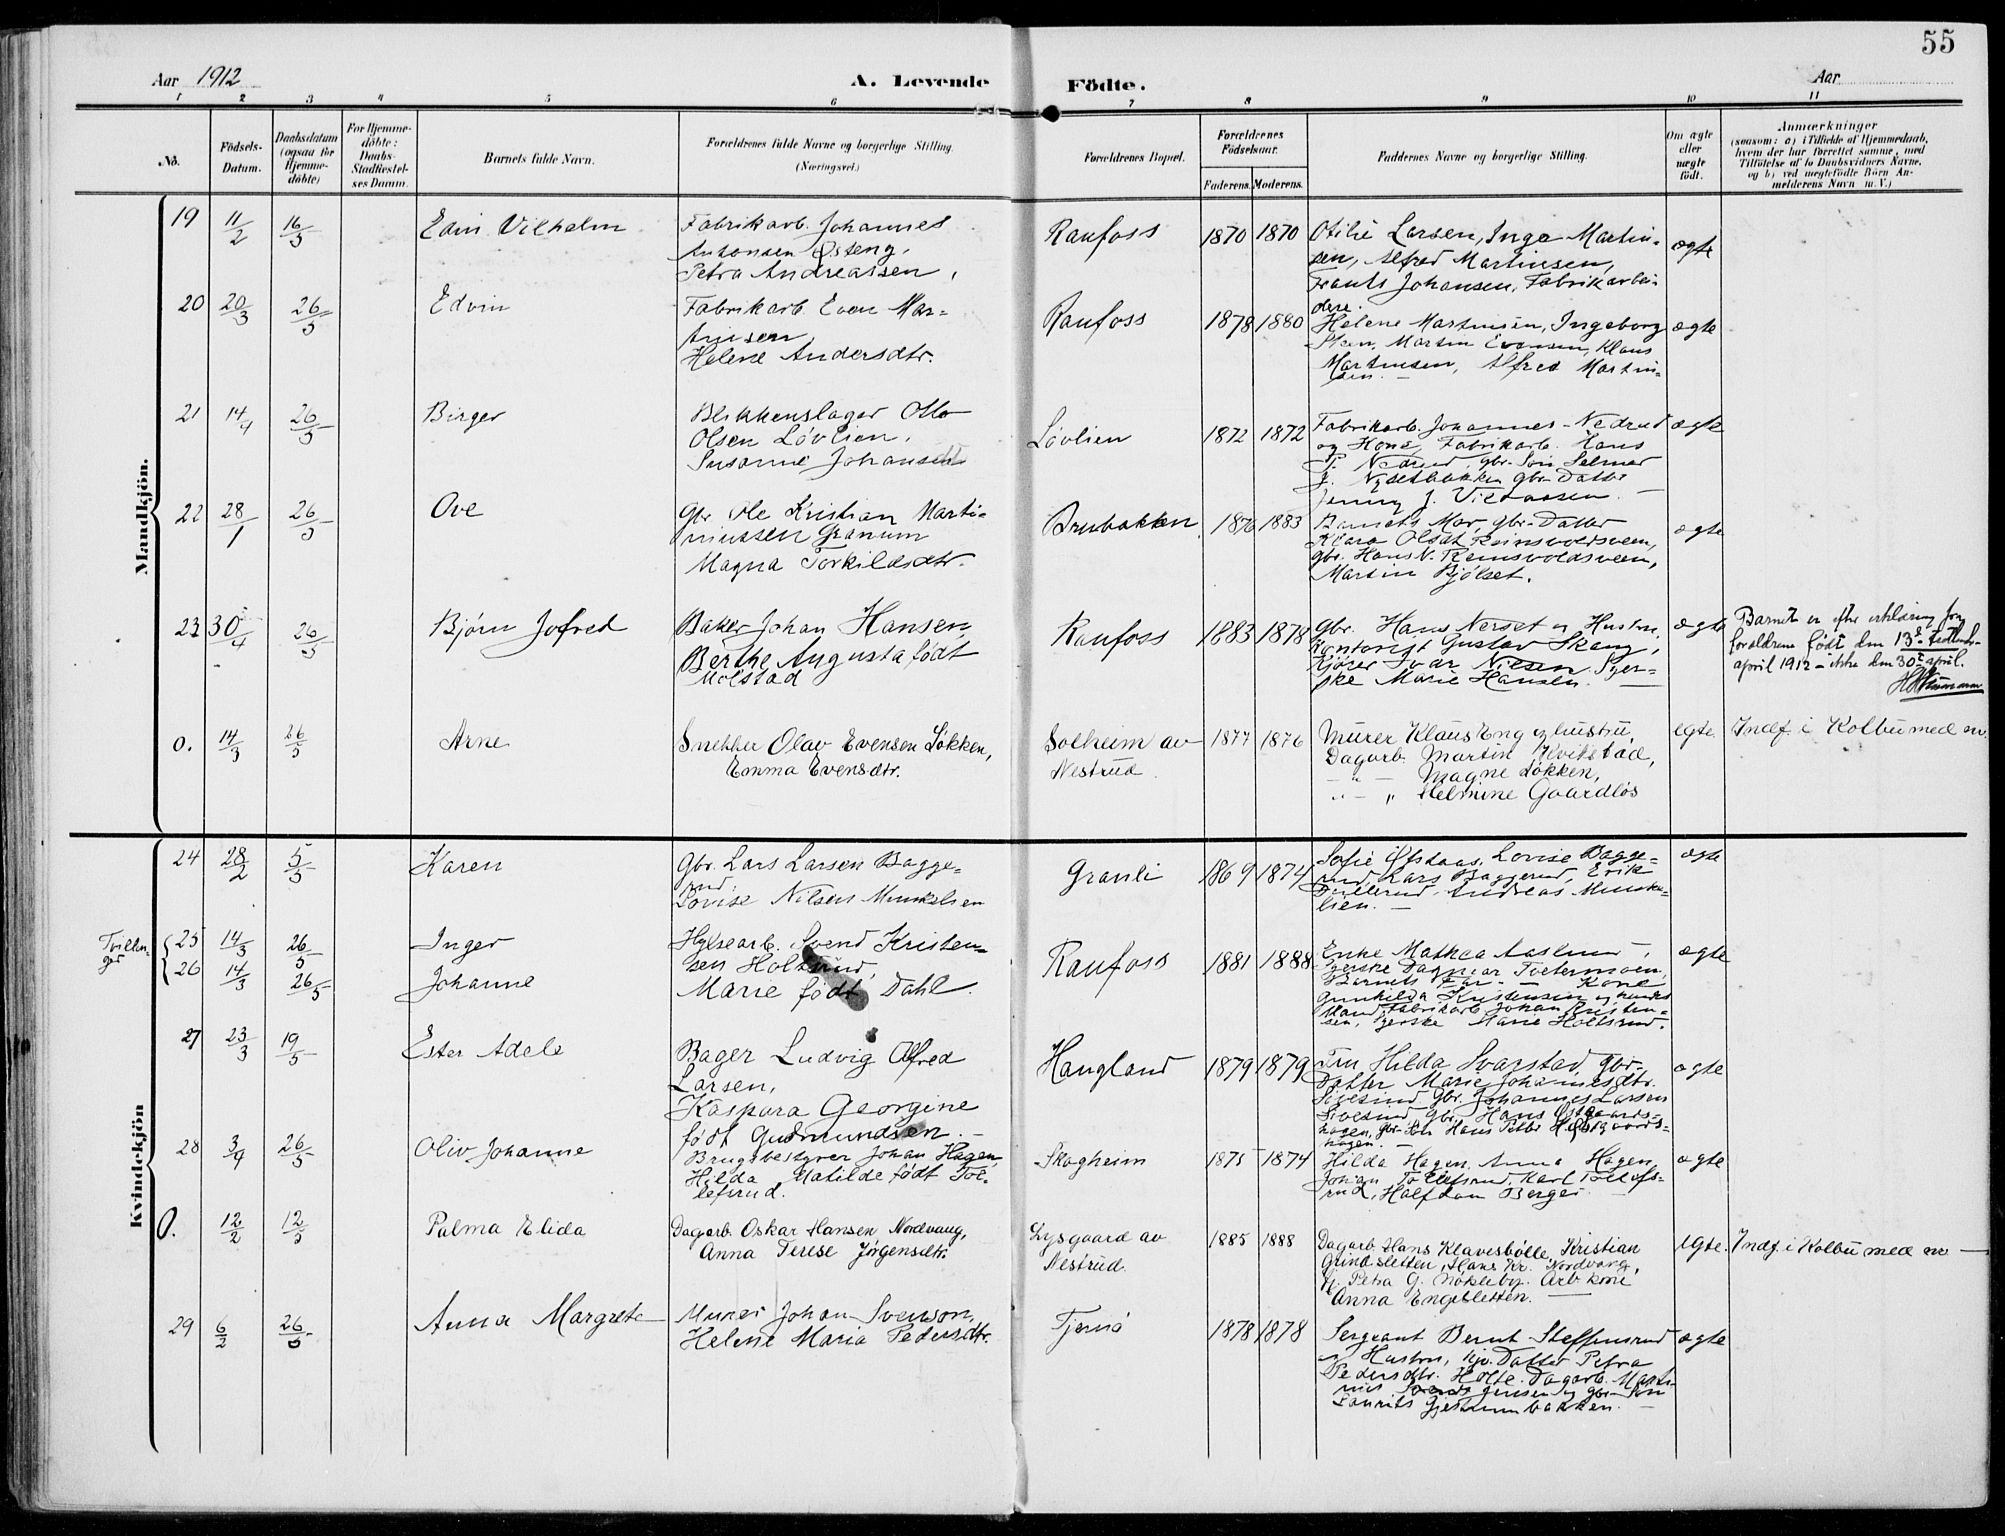 55
Aar 1912
A. Levende Födte.
Aar
1 2 3 4 5 6 7 8 9 10 11
No.
Födsels-
Datum.
Daabsdatum
(ogsaa for
Hjemme-
döbte)
For Hjemme-
döbte:
Daabs-
Stadfæstel-
ses Datum.
Barnets fulde Navn.
Forældrenes fulde Navne og borgerlige Stilling.
(Næringsvei.)
Forældrenes Bopæl.
Forældrenes
Födselsaar.
Faderens. Moderens.
Faddernes Navne og borgerlige Stilling.
Om ægte
eller
uægte
födt.
Anmærkninger
(saasom: a) i Tilfælde af Hjemmedaab,
hvem der har forrettet samme, med
Tilföielse af to Daabsvidners Navne,
og b) ved uegtefödte Börn An-
melderens Navn m. V.)
Mandkjön.
19 11/2 16/5 Edin Vilhelm
Fabrikarb. Johannes
Antonsen Østeng,
Petra Andreassen,
Raufoss 1870 1870
Otilie Larsen, Inga Martin-
sen, Alfred Martinsen,
Frants Johansen, Fabrikarbei-
dere.
ægte
20 20/3 26/5 Edvin
Fabrikarb. Even Mar-
tinsen
Helene Andersdtr.
Raufoss 1878 1880
Helene Martinsen, Ingeborg
Steen, Martin Evensen, Klaus
Martinsen, Alfred Martin-
sen. —
ægte
21 14/4 26/5 Birger
Blikkenslager Otto
Olsen Løvlien,
Susanne Johansen
Løvlien 1872 1872
Fabrikarb. Johannes Nedrud
og Kone, Fabrikarb. Hans
P. Nedrud, gbr. Søn Selmer
gbr. Datter
Jenny J.
ægte
22 28/1 26/5 Ove
Gbr Ole Kristian Marti-
niussen Granum
Magna Torkildsdtr.
Brubakken 1876 1883
Barnets Mor, gbr. Datter
Klara Olsdt. Reinsvoldsveen,
gbr. Hans N. Reinsvoldsveen,
Martin Bjølset.
ægte
23 30/4 26/5 Bjørn Jofred
Baker Johan Hansen,
Berthe Augusta født
Molstad
Raufoss 1883 1878
Gbr. Hans Nerset og Hustru,
Kontorist Gustav Skang,
Kjører Ivar Nilsen. Syer-
ske Marie Hansen. —
ægte
Barnet er efter erklæring fra
forældrene født den 13de
april 1912 – ikke den 30te april.
0. 14/3 26/5 Arne
Snekker Olav Evensen Løkken,
Emma Evensdtr.
Solheim av
Nestrud
1877 1876
Murer Klaus Eng og hustru,
Dagarb. Martin Hvitstad,
— " — Magne Løkken,
— " Helmine Gaardløs
egte
Indf. i Kolbu med nr.
Kvindekjön
24 28/2 5/5 Karen
Gbr. Lars Larsen Bagge-
rud.
Lovise Nilsen Munkelien
Granli 1869 1874
Sofie Øfstaas, Lovise Bagge-
rud, Lars Baggerud, Erik
Andreas Munke-
lien. —
ægte
Tvillin-
ger
25 14/3 26/5 Inger
26 14/3 26/5 Johanne
Hylsearb. Svend Kristen-
sen Holtsrud,
Marie født Dahl.
Raufoss 1881 1888
Enke Mathea Aaslund,
Syerske Dagmar Tvetermoen,
Barnets Far. — Kone
Gunhilda Kristensen og hendes
Mand, Fabrikarb. Johan Kristen-
sen, Syerske Marie Holtsrud.
ægte
27 23/3 19/5 Ester Adele
Bager Ludvig Alfred
Larsen,
Kaspara Georgine
født Gudmundsen. —
Haugland 1879 1879
Fru Hilda Svarstad, gbr.
Datter Marie Johannesdtr.
Sivesind, Gbr. Johannes Larsen
Sivesind, gbr. Hans Østgaards-
hagen, gbr. Søn Hans Peter Østgaards-
hagen. —
ægte
28 3/4 26/5 Oliv Johanne
Brugsbestyrer Johan Hagen,
Hilda Matilde født Tol-
lefsrud.
Skogheim 1875 1874
Hilda Hagen, Anna Hagen,
Johan Tollefsrud, Karl Tollefs-
rud, Halfdan Berger
ægte
0. 12/2 12/5 Palma Elida
Dagarb. Oskar Hansen Nordvang,
Anna Terese Jørgensdtr.
Lysgaard av
Nestrud.
1885 1888
Dagarb. Hans Klavesbølle, Kristian
Grindsletten, Hans Kr. Nordvang,
Petra G. Nøkleby. Arb kone
Anna Engebletten. —
egte.
Indf. i Kolbu med nr —
29 6/2 26/5 Anna Margrete
Murer Johan Svenson,
Helene Maria Pedersdtr.
Tjernø 1878 1878
Sergeant Bernt Steffensrud
og Hustru, Datter Petra
Pedersdtr. Holte. Dagarb. Marti-
nius Jensen og gbr. Søn
Laurits Gjestrumbakken. —
ægte